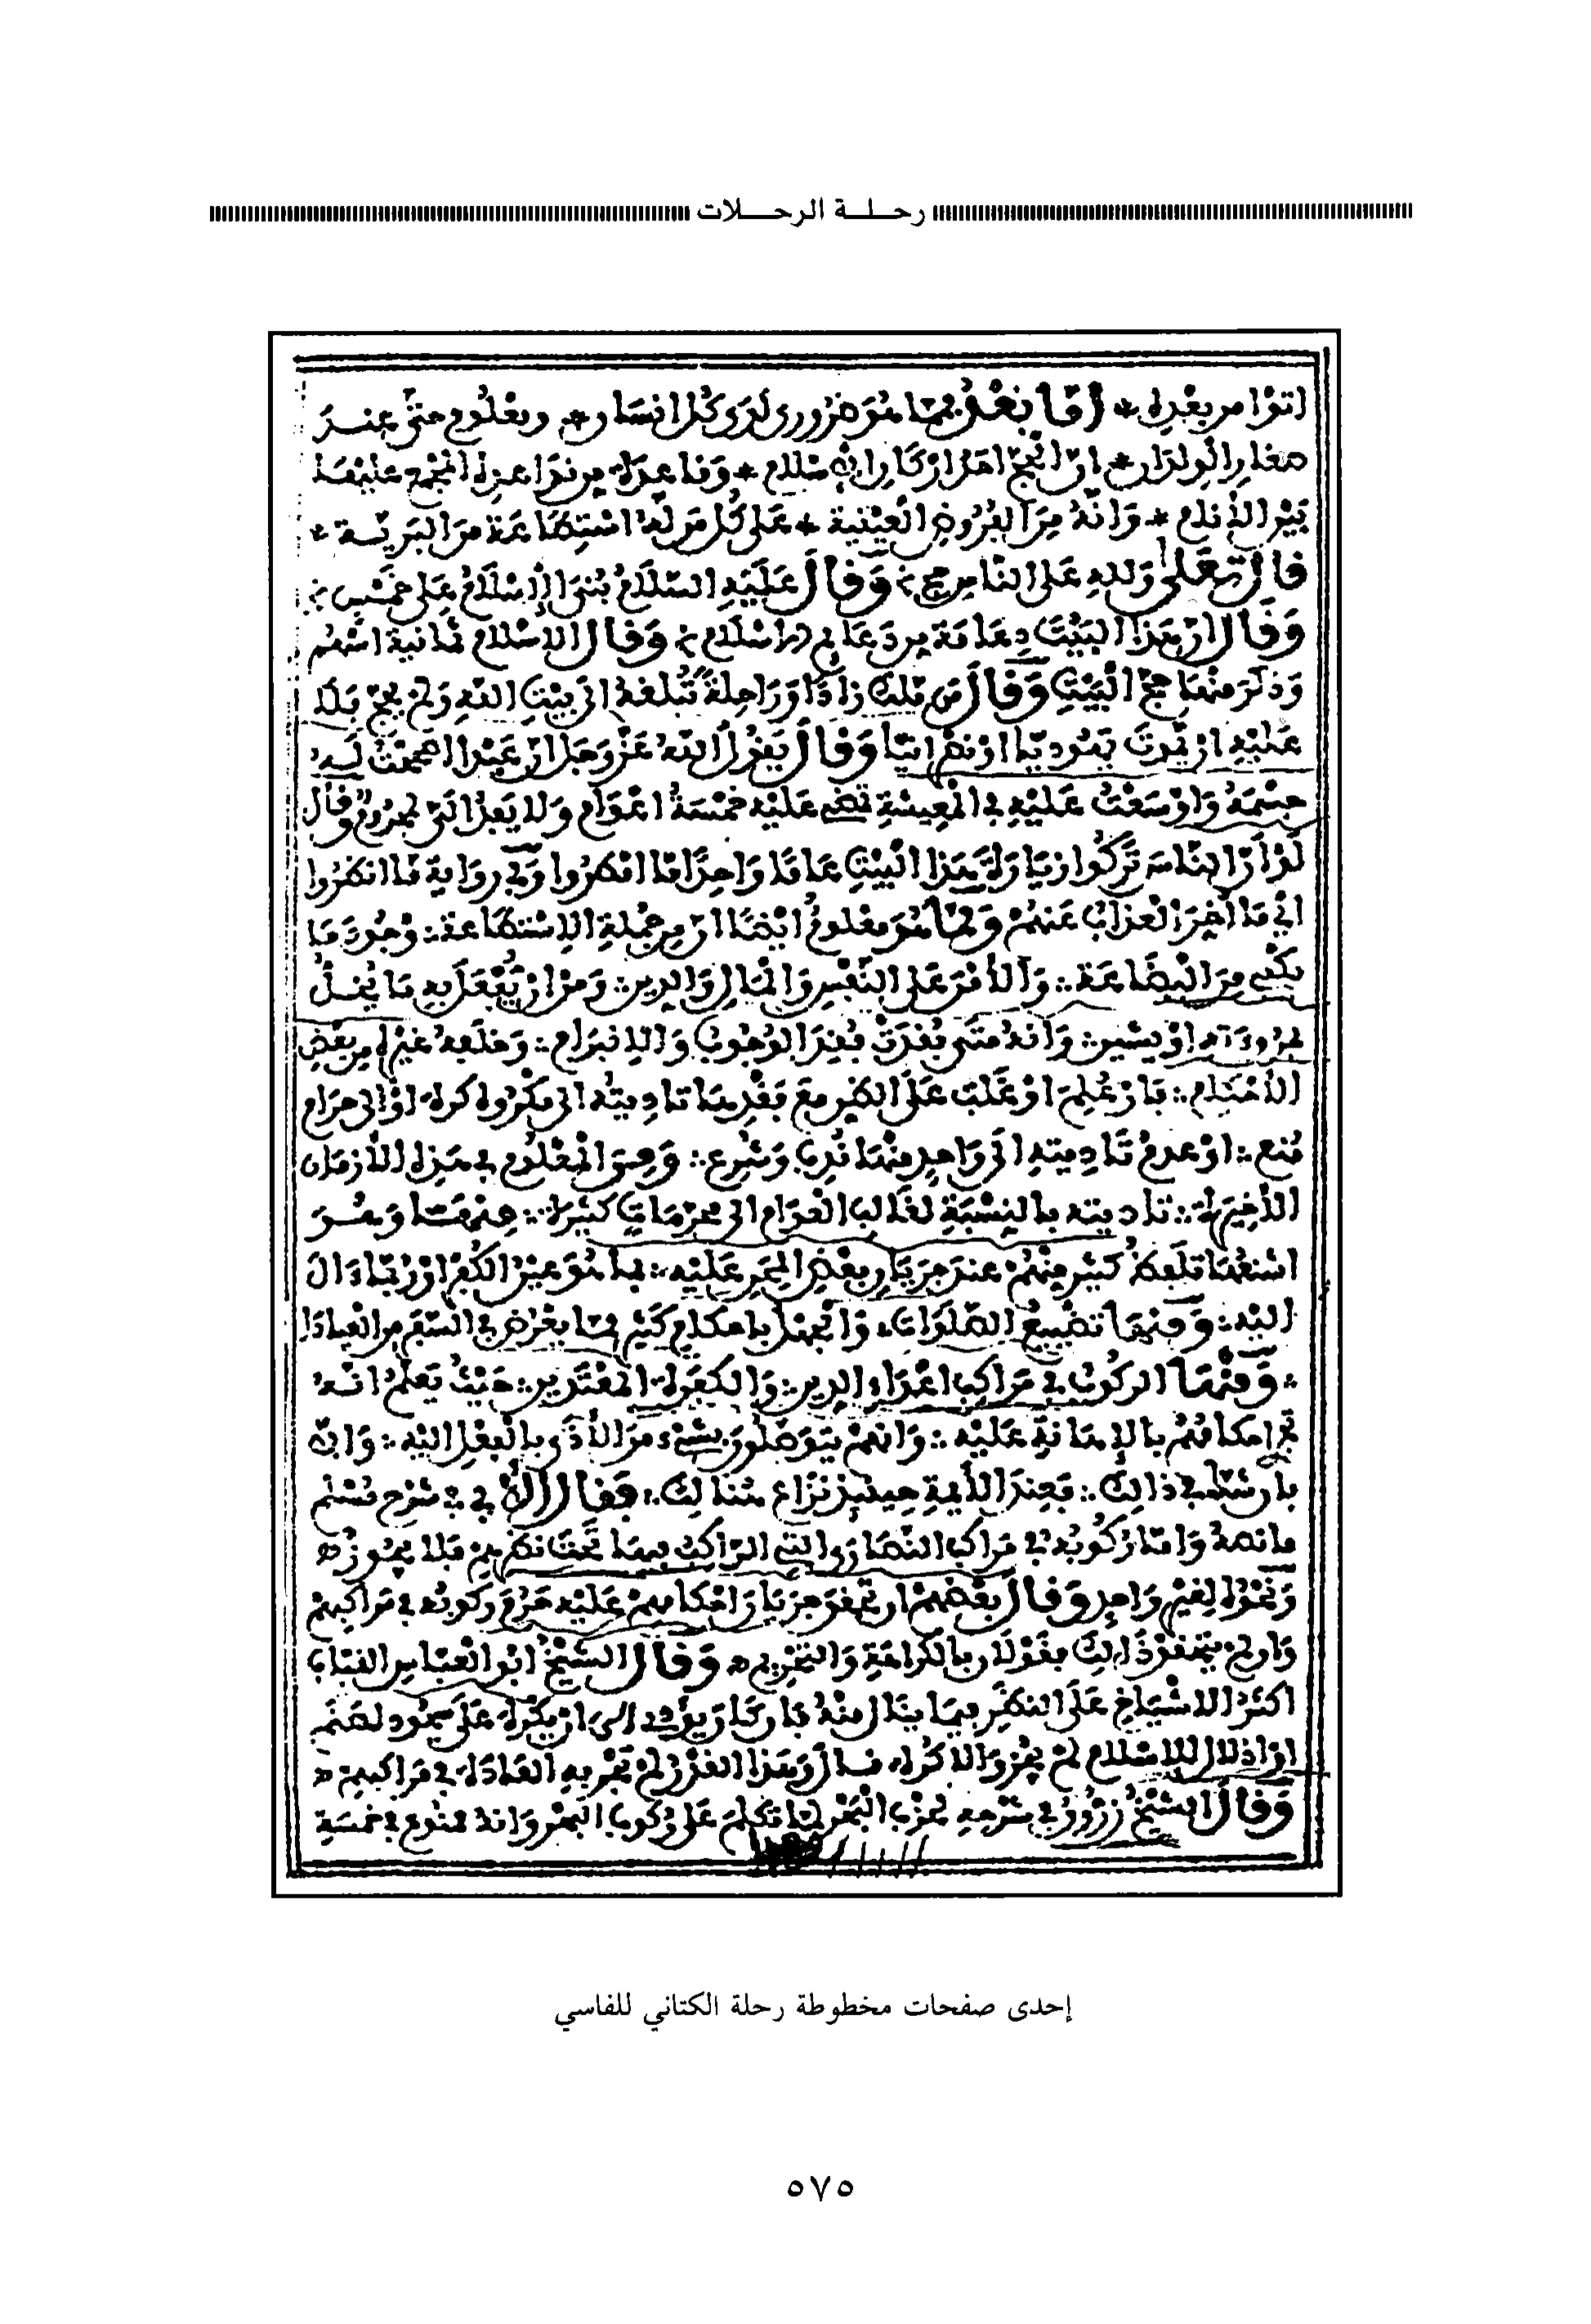 رحلة الرحلات
اتوا من بعده * أما بعد فمما هو ضروري لدى كل انسان * ومعلوم حتى عند
صغار الولدان * ان الحج احد اركان الاسلام * وقاعدة من قواعده المجمع عليها
بين الأنام * وانه من الفروض العينية * على كل من له استطاعة من البرية *
قال تعلى ولله على الناس حج وقال عليه السلام بني الإسلام على خمس
وقال ان هذا البيت دعامة من دعائم الاسلام وقال الاسلام ثمانية اسهم
وذكر منها حج البيت وقال من ملك زادا وراحلة تبلغه الى بيت الله ولم يحج فلا
عليه ان يموت يهوديا او نصرانيا وقال يقول الله عز وجل ان عبدا صححت له
جسمه واوسعت عليه في المعيشة تمضي عليه خمسة اعوام ولا يفد الي لمحروم وقال
لو ان الناس تركوا زيارة هذا البيت عاما واحدا ما امطروا وفي رواية ما انظروا
اي ما اخر العذاب عنهم ومما هو معلوم ايضا ان من جملة الاستطاعة وجود ما
يكفي من البضاعة والأمن على النفس والمال والدين ومن ان يفعل به ما يخل
او يشين وانه متى فقدت فقد الوجوب والانبرام وخلفه غيره من بعض
الأحكام فان علم او غلب على الظن مع فقدها تاديته الى مكروه كره او الى حرام
منع او عدم تاديته الى واحد منهما ندب وشرع ومن المعلوم في هذه الأزمان
الأخيرة تاديته بالنسبة لغالب العوام الى محرمات كثيرة فمنها وهو
اشنعها تلفظ كثير منهم عند جريان بعض المحن عليه بما هو عين الكفر او ربما دال
اليه ومنها تضييع الصلوات والجهل باحكام كثير مما يعرض في السفر من العبادا
ومنها الركوب في مراكب اعداء الدين والكفرة المعتدين حيث تعلم انه
تجري احكامهم بالاهانة عليه وانهم يتوصلون بشيء من الأذى بالفعل اليه وانه
بان شك في ذالك فعند الأئمة حينئذ نزاع هنالك فقال الأبي في شرح مسلم
ما نصه واما ركوبه في مراكب النصارى التي الراكب فيها تحت نظرهم فلا يجوز هـ
ونحوه لغير واحد وقال بعضهم ان تحقق جريان احكامهم عليه حرم ركوبه في مراكبهم
وان لم يتحقق ذالك فقولان بالكراهة والتحريم هـ وقال الشيخ ابو العباس القباب
اكثر الاشياخ على النظر فيما ينال منه فان كان يؤدي الى ان يكره على سجود لصنم
او اذلال للاسلام لم يجز والا كره قال وهذا القدر لم تجر به العادة في مراكبهم هـ
وقال الشيخ زروق في شرحه لحزب البحر لما تكلم على ركوب البحر وانه ممنوع في خمسة
إحدى صفحات مخطوطة رحلة الكتاني للفاسي
٥٧٥